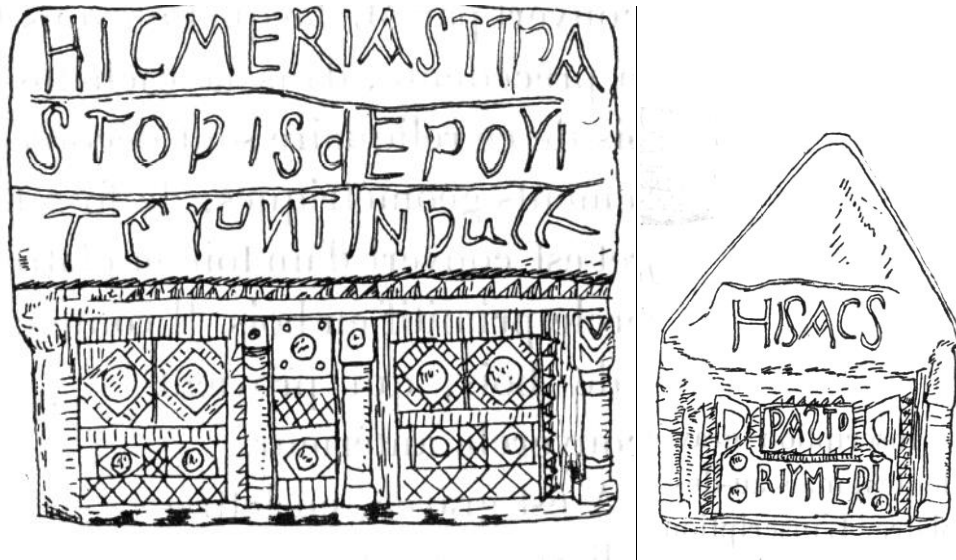 HICMERIASTTPA
STOPISdEPOYI
TEYuNTINPuCC
HISACS
PASTO
RIYMERI